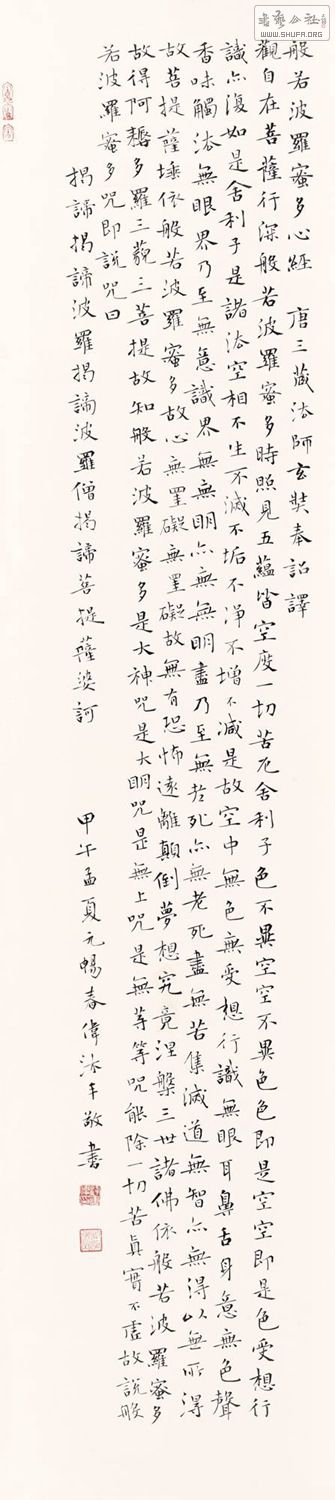 書藝公社
WWW.SHUFA.ORG
般若波羅蜜多心經 唐三藏法師玄奘奉詔譯
觀自在菩薩行深般若波羅蜜多時照見五蘊皆空度一切苦厄舍利子色不異空空不異色色即是空空即是色受想行
識亦復如是舍利子是諸法空相不生不滅不垢不淨不增不減是故空中無色無受想行識無眼耳鼻舌身意無色聲
香味觸法無眼界乃至無意識界無無明亦無無明盡乃至無老死亦無老死盡無苦集滅道無智亦無得以無所得
故菩提薩埵依般若波羅蜜多故心無罣礙無罣礙故無有恐怖遠離顛倒夢想究竟涅槃三世諸佛依般若波羅蜜多
故得阿耨多羅三藐三菩提故知般若波羅蜜多是大神咒是大明咒是無上咒是無等等咒能除一切苦真實不虛故說般
若波羅蜜多咒即說咒曰
揭諦揭諦波羅揭諦波羅僧揭諦菩提薩婆訶
甲午孟夏元暢春偉沐手敬書